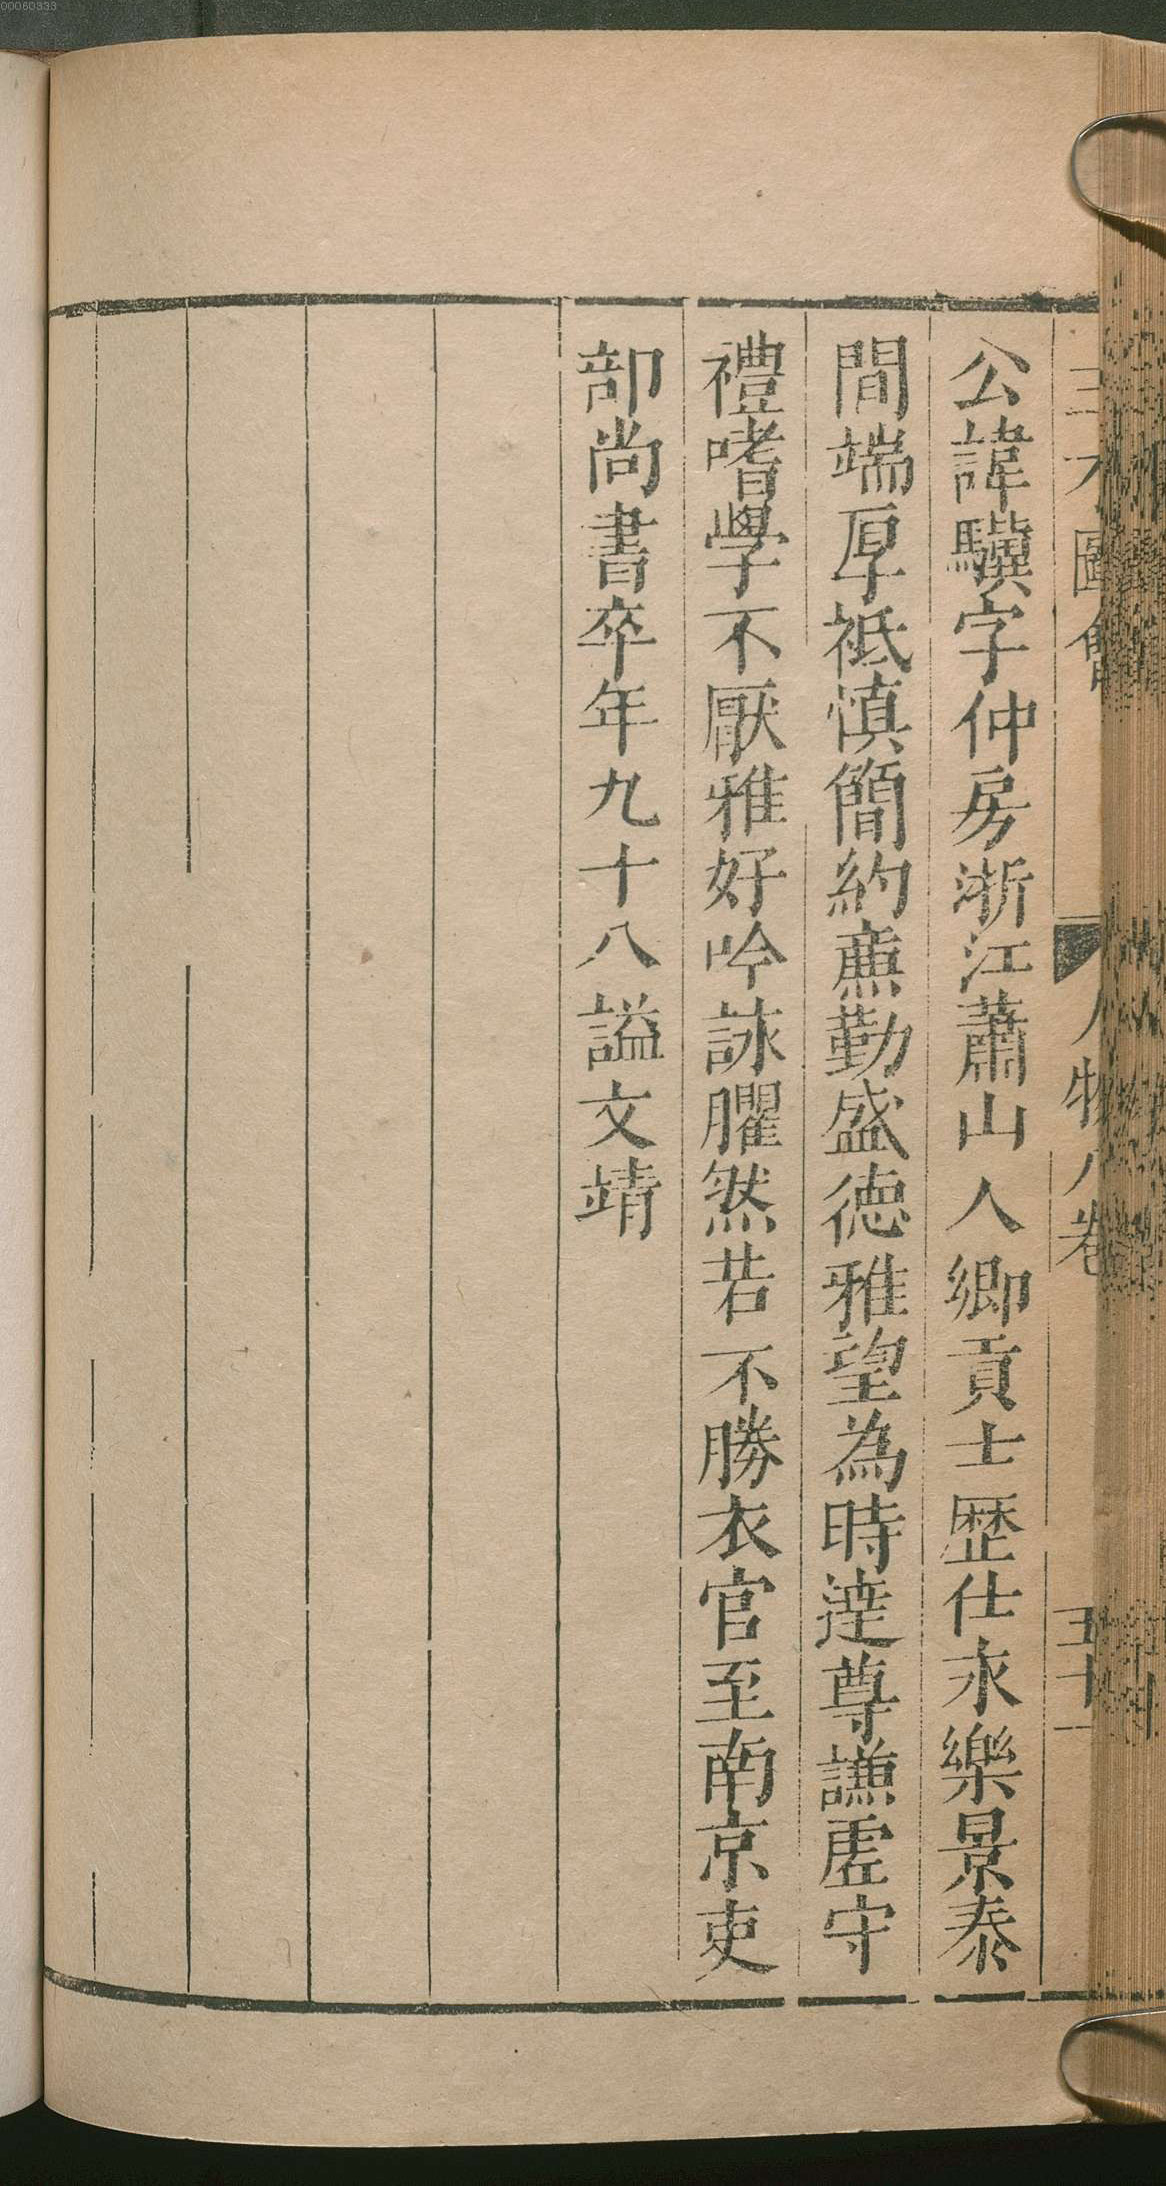 00060333
三才圖會 人物八卷 五十一
公諱驥字仲房浙江蕭山人鄉貢士歷仕永樂景泰
間端厚祗慎簡約㢘勤盛德雅望為時逹尊謙虛守
禮嗜學不厭雅好吟詠臞然若不勝衣官至南京吏
部尚書卒年九十八謚文靖